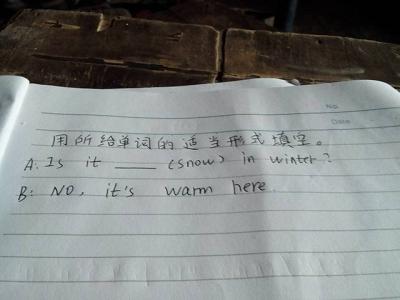 No
Date
用所给单词的适当形式填空。
A: Is it ____ (snow) in winter?
B: No, it's warm here.